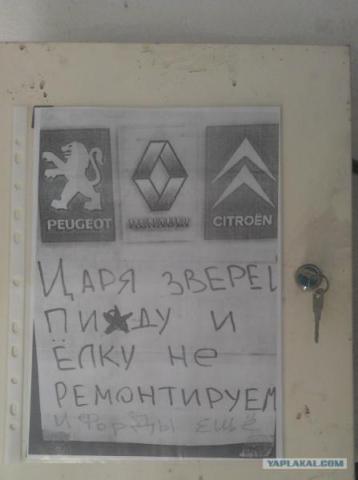 PEUGEOT RENAULT CITROËN
ЦАРЯ ЗВЕРЕЙ
ПИ★ДУ И
ЁЛКУ НЕ
РЕМОНТИРУЕМ
И ФОРДЫ ЕЩЁ
YAPLAKAL.COM